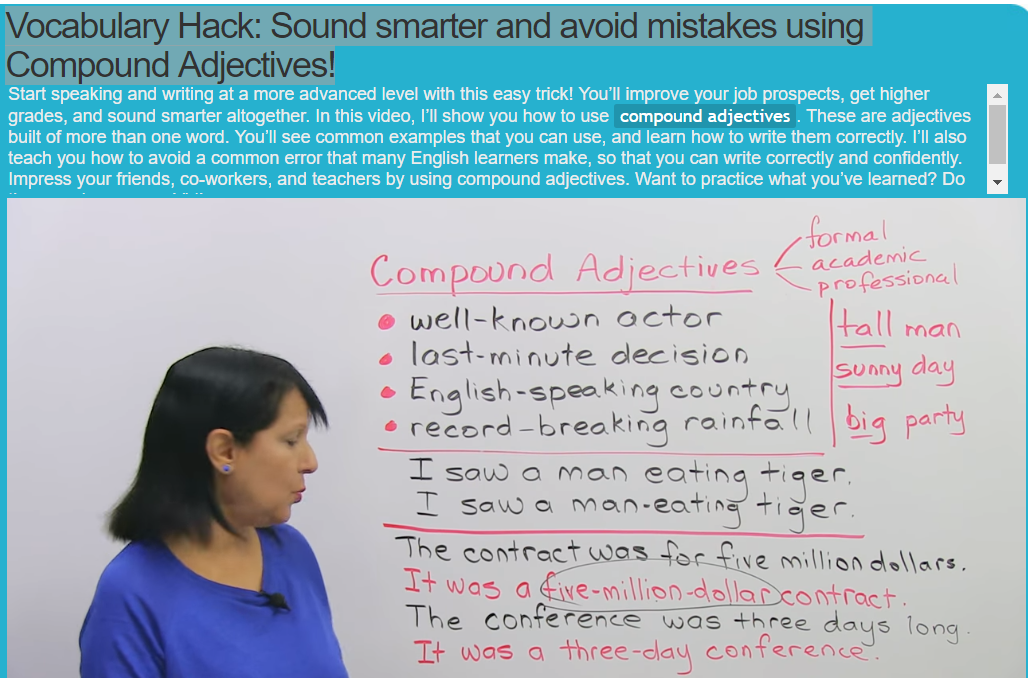 Vocabulary Hack: Sound smarter and avoid mistakes using
Compound Adjectives!
Start speaking and writing at a more advanced level with this easy trick! You'll improve your job prospects, get higher
grades, and sound smarter altogether. In this video, I'll show you how to use compound adjectives. These are adjectives
built of more than one word. You'll see common examples that you can use, and learn how to write them correctly. I'll also
teach you how to avoid a common error that many English learners make, so that you can write correctly and confidently.
Impress your friends, co-workers, and teachers by using compound adjectives. Want to practice what you've learned? Do
Compound Adjectives
formal
academic
professional
• well-known actor
• last-minute decision
• English-speaking country
• record-breaking rainfall
tall man
sunny day
big party
I saw a man eating tiger.
I saw a man-eating tiger.
The contract was for five million dollars.
It was a five-million-dollar contract.
The conference was three days long.
It was a three-day conference.